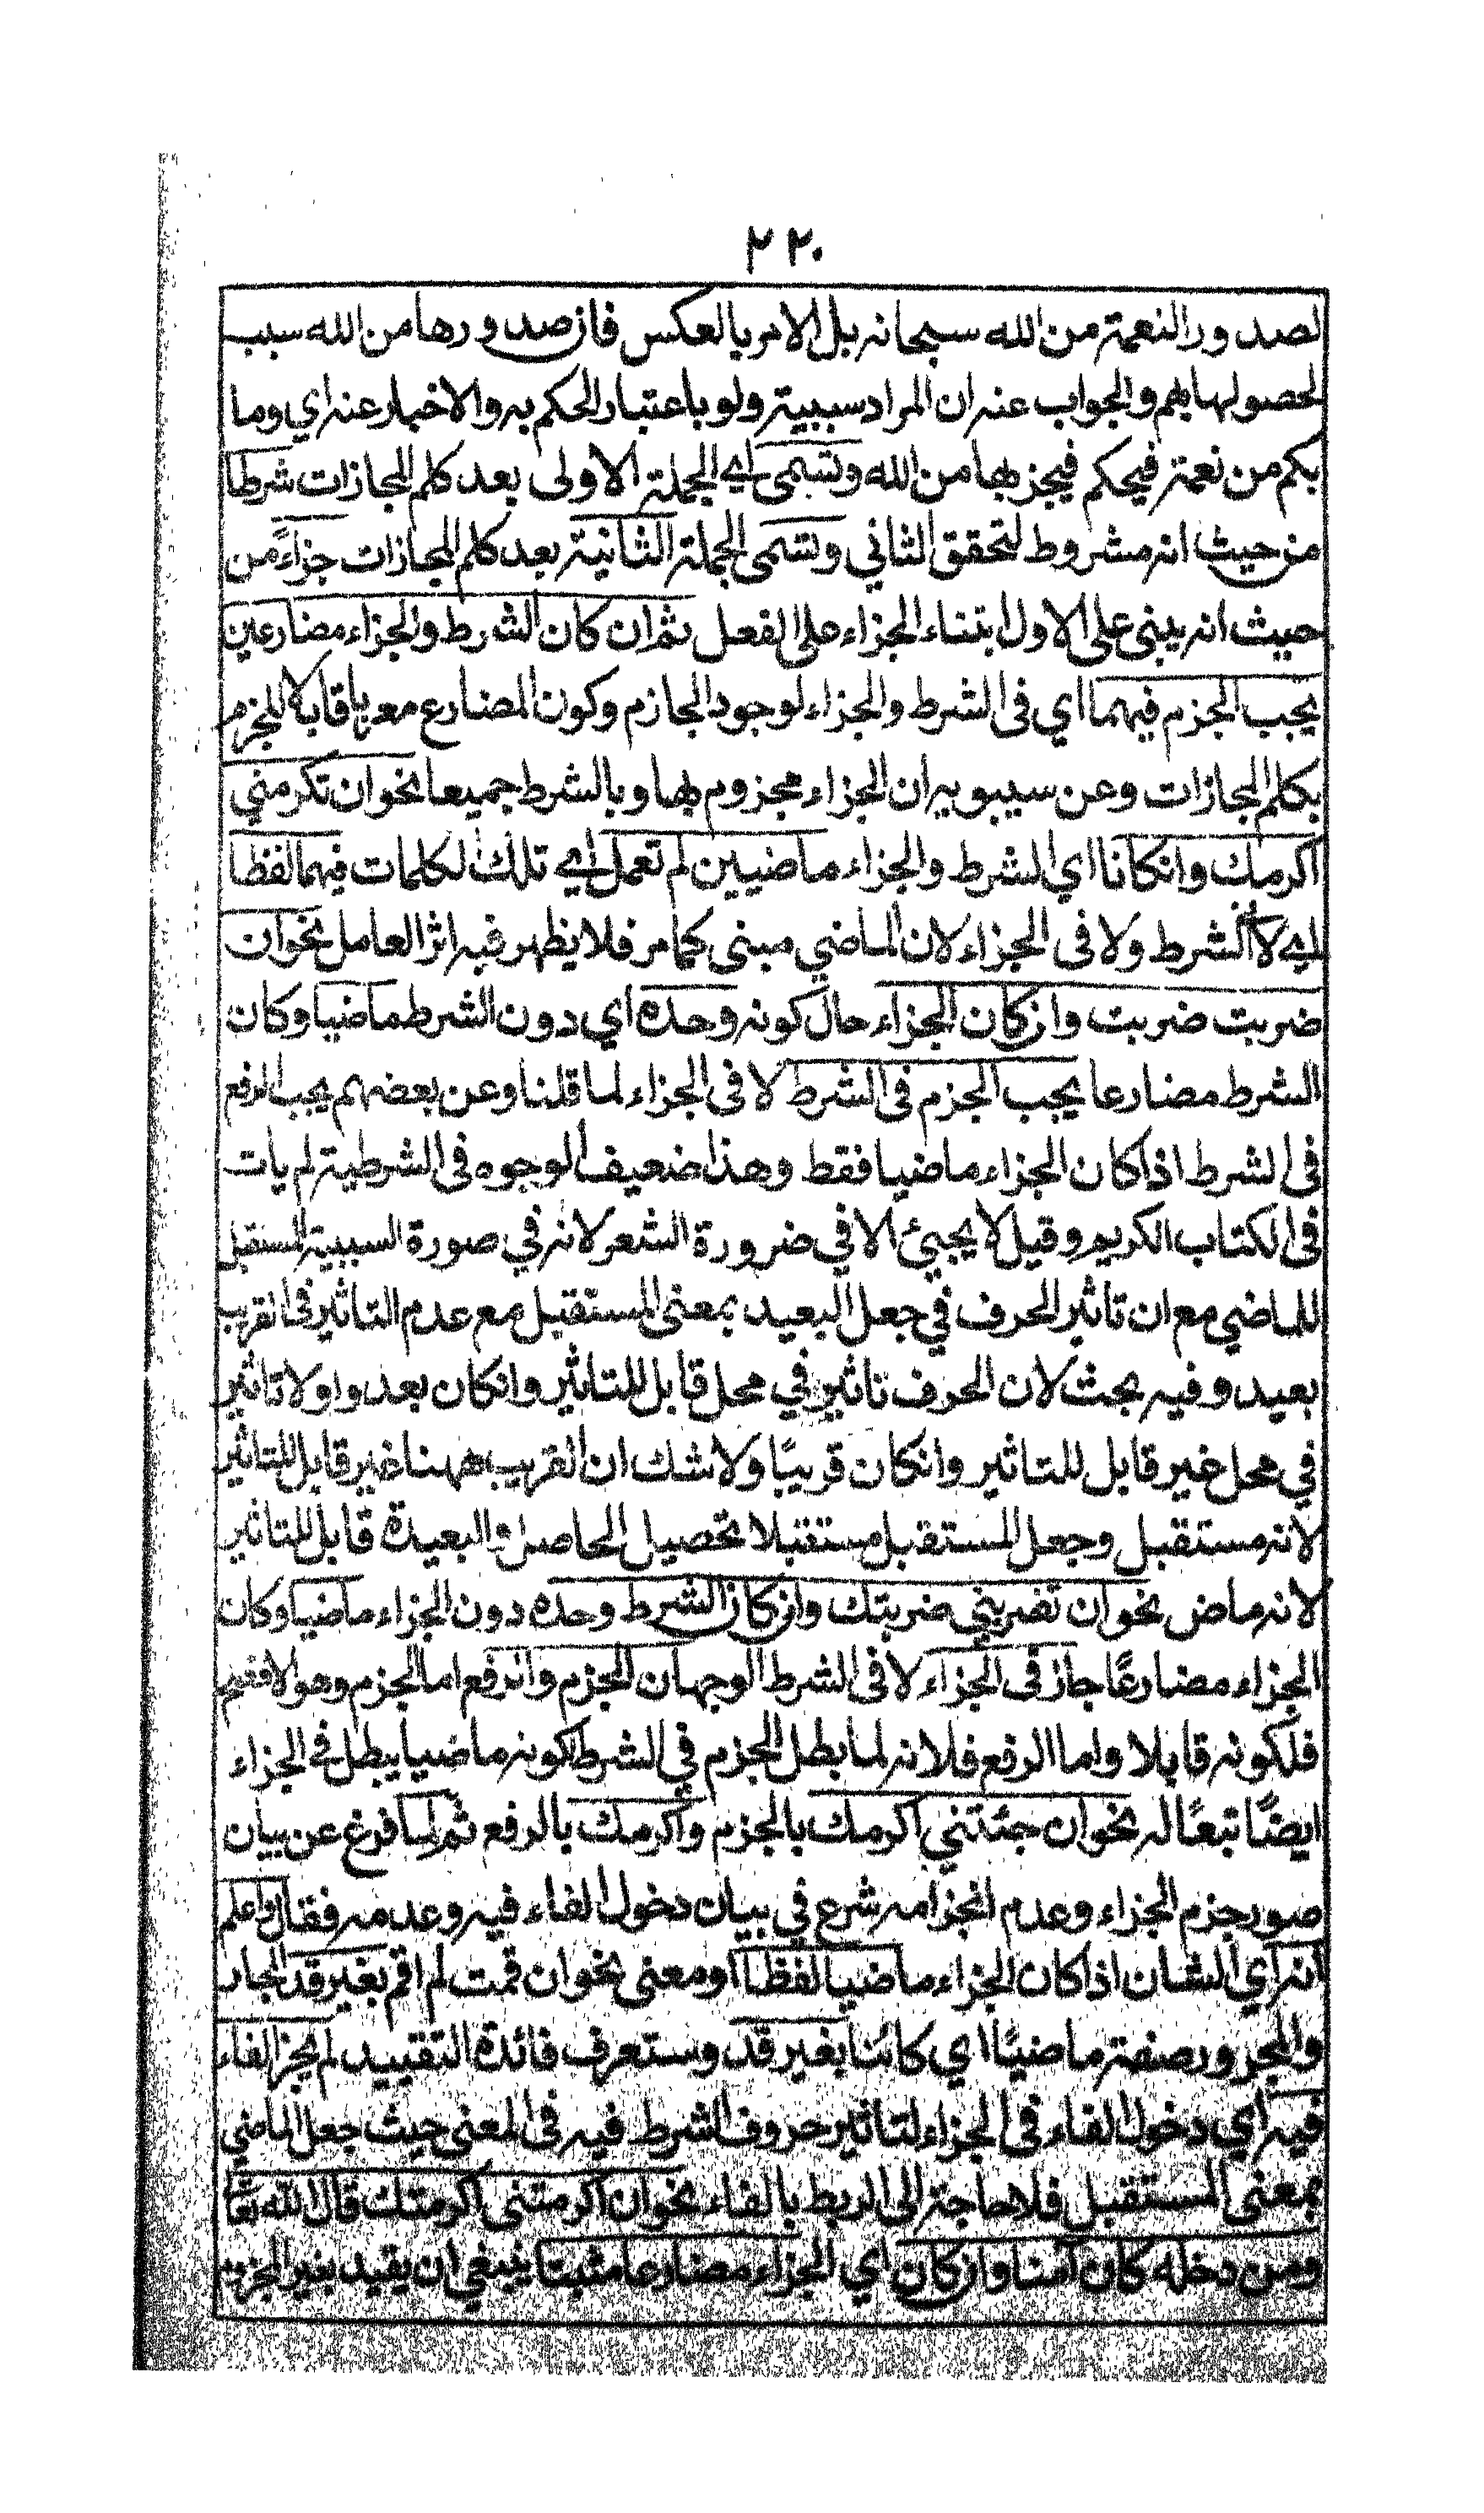 ٢٢٠
لصدور النعمة من الله سبحانه بل الامر بالعكس فان صدورها من الله سبب
لحصولها بهم والجواب عنه ان المراد سببية ولو باعتبار الحكم به والاخبار عنه اي وما
بكم من نعمة فيحكم فيجز بها من الله وتسمى اي الجملة الاولى بعد كلم المجازات شرطا
من حيث انه مشروط لتحقق الثاني وتسمى الجملة الثانية بعد كلم المجازات جزاءً من
حيث انه يبنى على الاول ابتناء الجزاء على الفعل ثم ان كان الشرط والجزاء مضارعين
يجب الجزم فيهما اي فى الشرط والجزاء لوجود الجازم وكون المضارع معربا قابلا للجزم
بكلم المجازات وعن سيبويه ان الجزاء مجزوم بها وبالشرط جميعا نحو ان تكرمني
اكرمك وان كانا اي الشرط والجزاء ماضيين لم تعمل اي تلك الكلمات فيهما لفظا
اي لا فى الشرط ولا فى الجزاء لان الماضي مبنى كما مر فلا يظهر فيه اثر العامل نحو ان
ضربت ضربت وان كان الجزاء حال كونه وحده اي دون الشرط ماضيا وكان
الشرط مضارعا يجب الجزم فى الشرط لا فى الجزاء لما قلنا وعن بعضهم يجب الرفع
فى الشرط اذا كان الجزاء ماضيا فقط وهذا ضعيف الوجوه فى الشرطية لم يات
فى الكتاب الكريم وقيل لا يجيئ الا في ضرورة الشعر لانه في صورة السببية المستقبل
للماضي مع ان تاثير الحرف في جعل البعيد بمعنى المستقبل مع عدم التاثير فى القريب
بعيد وفيه بحث لان الحرف تاثير في محل قابل للتاثير وانكان بعد واو لا تاثير
في محل غير قابل للتاثير وانكان قريبًا ولا شك ان القريب ههنا غير قابل للتاثير
لانه مستقبل وجعل المستقبل مستقبلا تحصيل الحاصل والبعيدة قابل للتاثير
لانه ماض نحو ان تضربني ضربتك وان كان الشرط وحده دون الجزاء ماضيا وكان
الجزاء مضارعًا جاز فى الجزاء لا فى الشرط الوجهان الجزم والرفع اما الجزم وهو الافقم
فلكونه قابلا واما الرفع فلانه لما بطل الجزم في الشرط لكونه ماضيا يبطل في الجزاء
ايضًا تبعًا له نحو ان جئتني اكرمك بالجزم واكرمك بالرفع ثم لما فرغ عن بيان
صور جزم الجزاء وعدم انجزامه شرع في بيان دخول الفاء فيه وعدمه فقال واعلم
انه اي الشان اذا كان الجزاء ماضيا لفظا او معنى نحو ان قمت لم اقم بغير قد الجار
والمجرور صفة ماضيًا اي كائنا بغير قد وستعرف فائدة التقييد لم يجز الفاء
فيه اي دخول الفاء فى الجزاء لتاثير حروف الشرط فيه فى المعنى حيث جعل الماضي
بمعنى المستقبل فلا حاجة الى الربط بالفاء نحو ان اكرمتنى اكرمتك قال الله تعا
ومن دخله كان آمنا وان كان اي الجزاء مضارعا مثبتا ينبغي ان يقيد بغير المجزوم